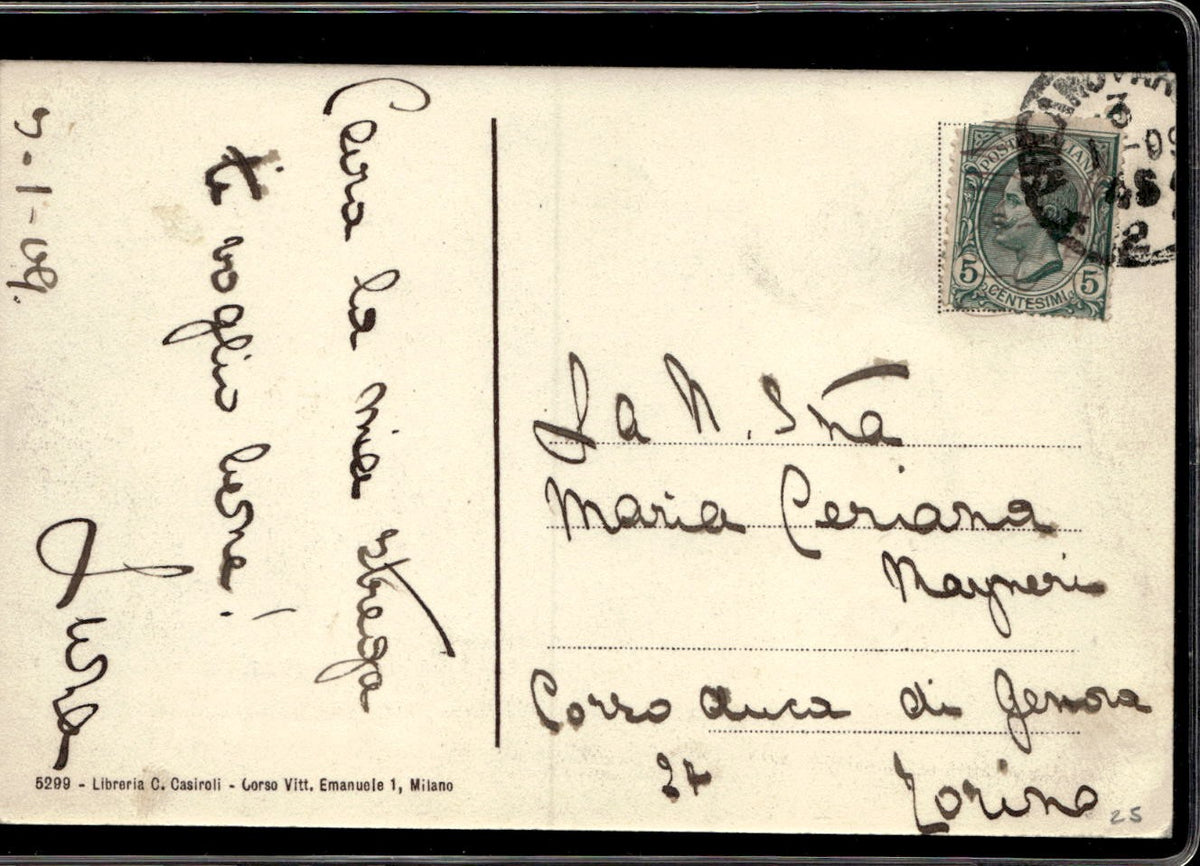 Cara la mia strega
ti voglio bene!
5-1-09.
POSTE ITALIANE
5 5
CENTESIMI
3
09
2
La N. Sna
Maria Ceriana
Mayneri
Corso duca di Genova
27
Torino
25
5299 - Libreria C. Casiroli - Corso Vitt. Emanuele 1, Milano